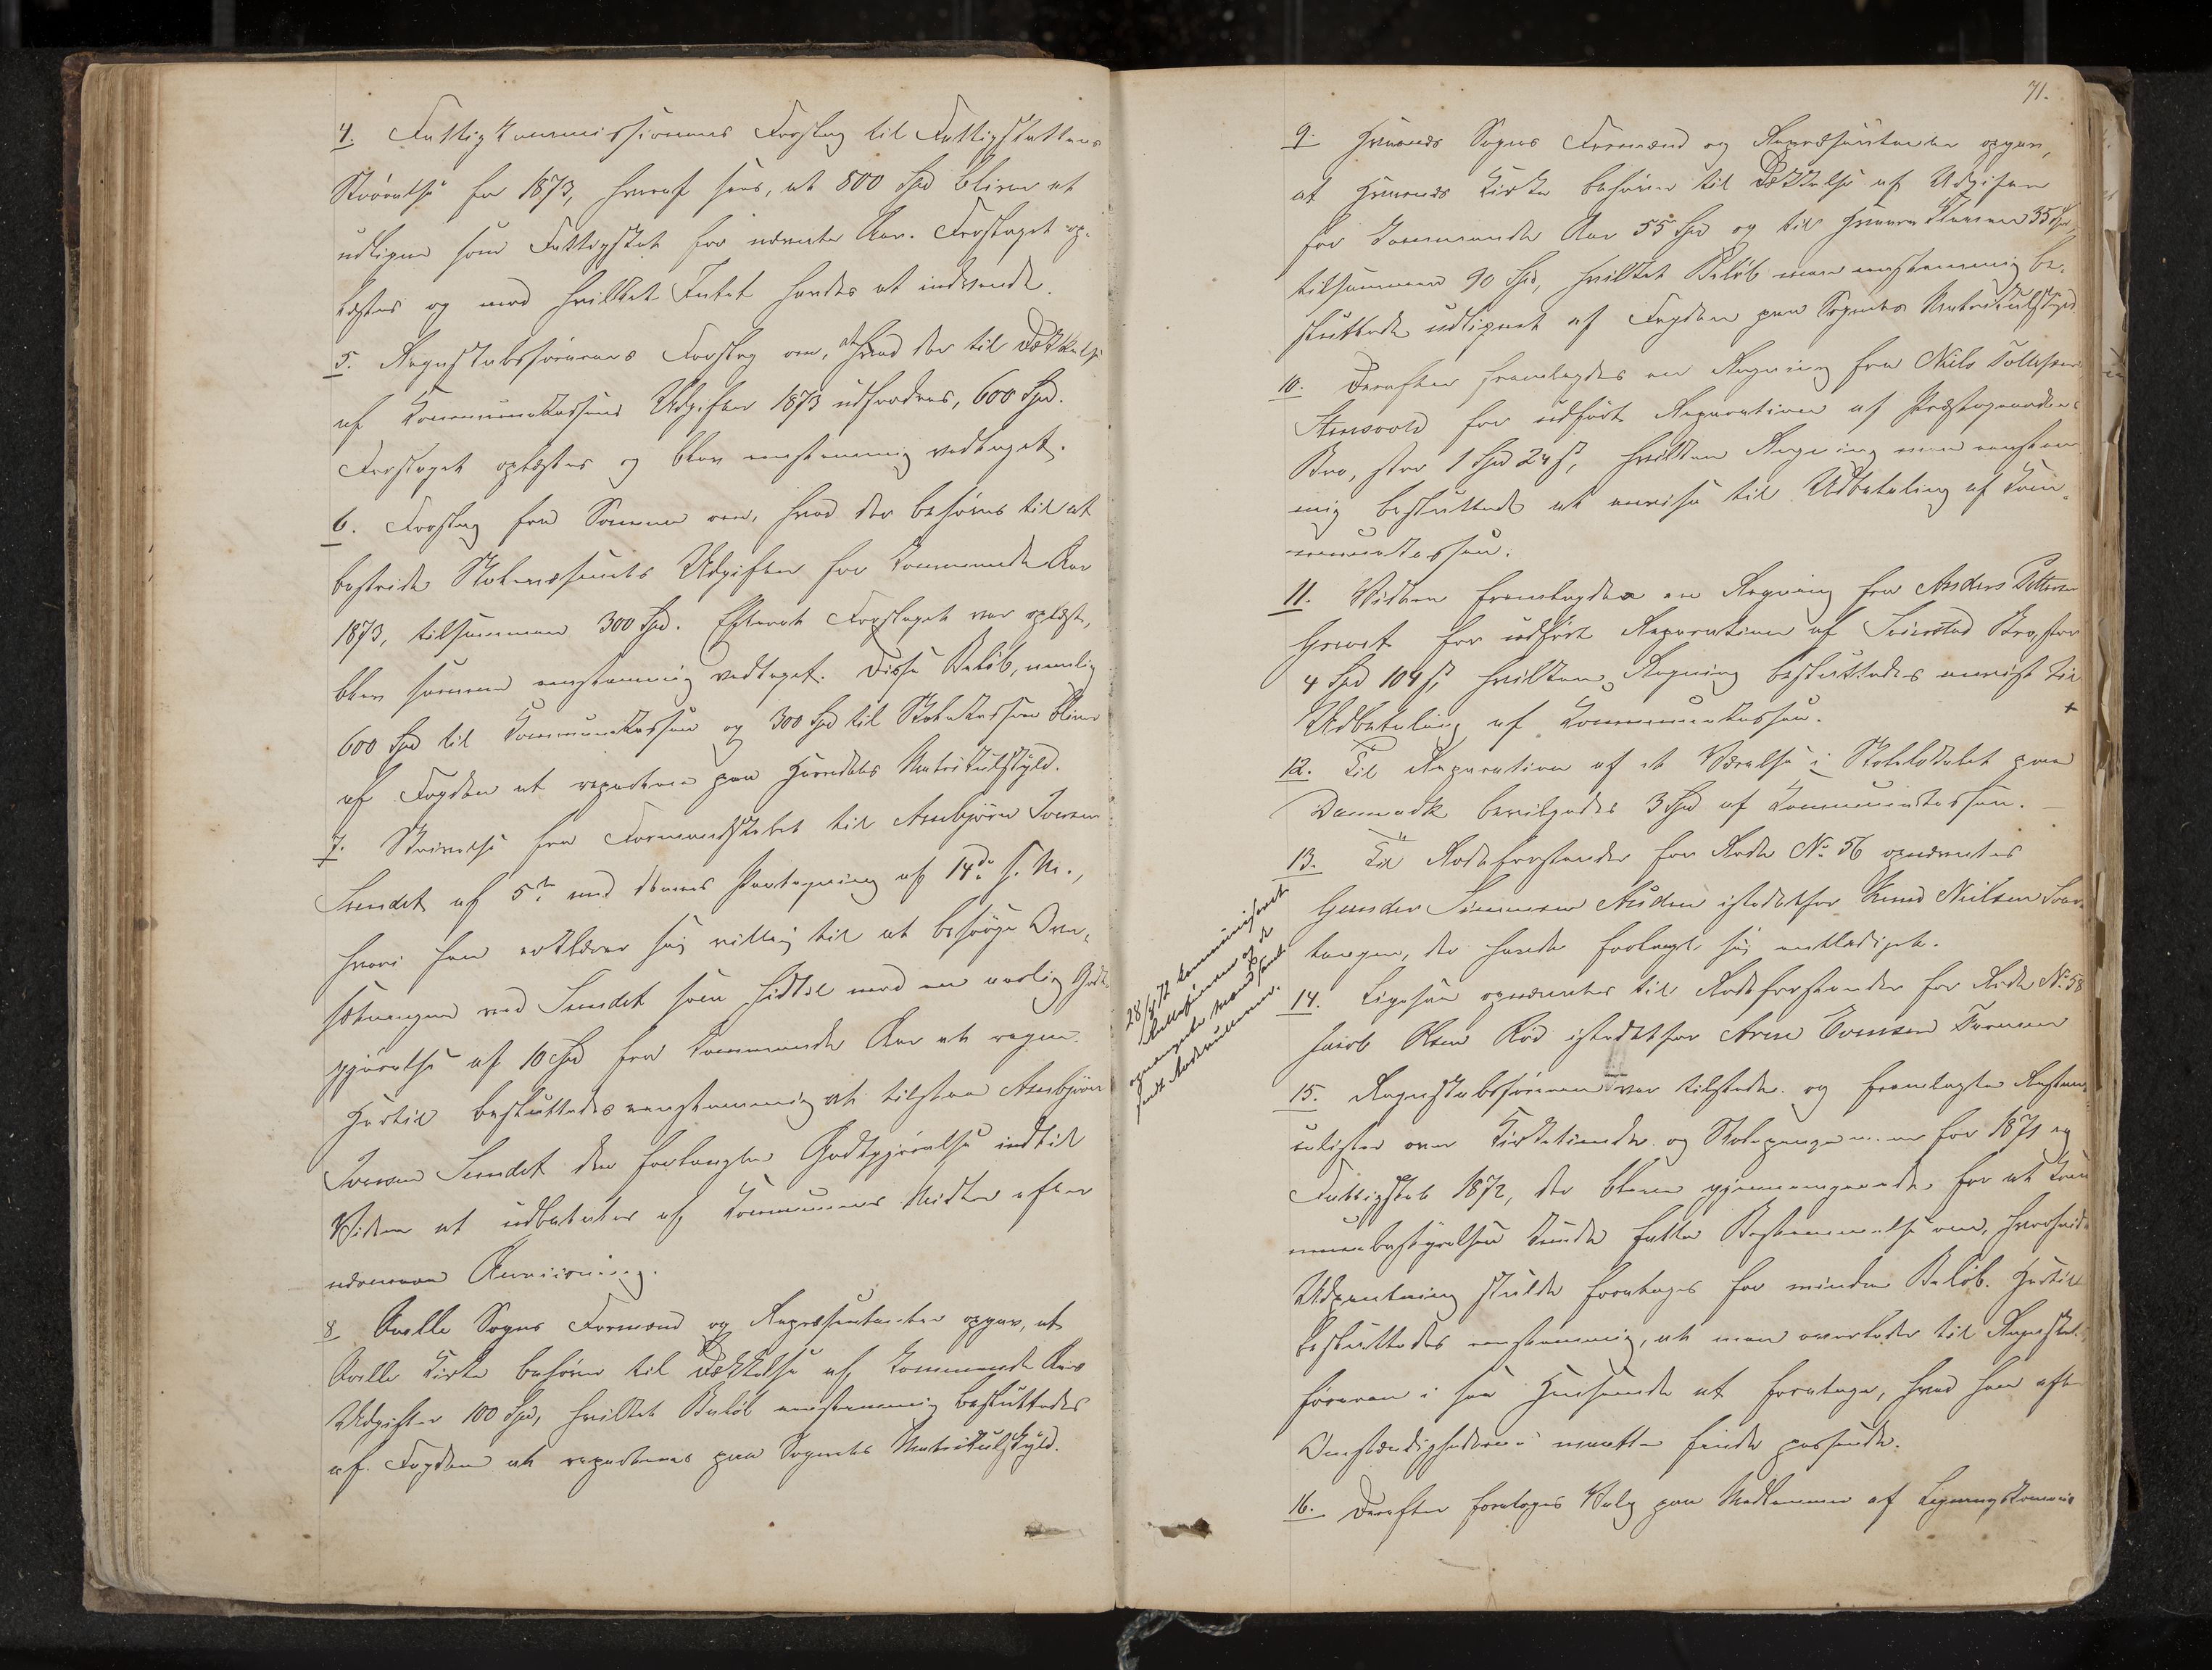 4. Fattigkommissionens Forslag til Fattigskattens
Størrelse for 1873, hvoraf sees, at 800 Spd bliver at
udligne som Fattigskat for nævnte Aar. Forslaget op-
læstes og mod hvilket Intet havdes at indvende.
5. Regnskabsførerens Forslag om, at hvad der til Dækkelse
af Kommunekassens Udgifter 1873 udfordres, 600 Spd.
Forslaget oplæstes og blev enstemmig vedtaget.
6. Forslag fra Samme om, hvad der behøves til at
bestride Skolevæsenets Udgifter for kommende Aar
1873, tilsammen 300 Spd. Efterat Forslaget var oplæst,
blev samme enstemmig vedtaget. Disse Beløb, nemlig
600 Spd til Kommunekassen og 300 Spd til Skolekassen bliver
af Fogden at repartere paa Herredets Matrikulskyld.
7. Skrivelse fra Formandskabet til Arnbjørn Iversen
Sundet af 5te med dennes Paategning af 14de s. M.,
hvori han erklærer sig villig til at besørge Over-
sætningen ved Sundet som hidtil mod en aarlig Godt-
gjørelse af 10 Spd fra kommende Aar at regne.
Hertil besluttedes enstemmig at tilstaa Arnbjørn
Iversen Sundet den forlangte Godtgjørelse indtil
Videre at udbetales af Kommunens Midler efter
nærmere Anviisning.
8 Qville Sogns Formænd og Repræsentanter opgav, at
Qville Kirke behøver til Dækkelse af kommende Aars
Udgifter 100 Spd, hvilket Beløb enstemmig besluttedes
af Fogden at reparteres paa Sognets Matrikulskyld.
71.
9. Sogns Formænd og Repræsentanter opgav,
at Kirke behøver til Dækkelse af Udgifter
for kommende Aar 55 Spd og til 35 Spd,
tilsammen 90 Spd, hvilket Beløb man enstemmig be-
sluttede udlignet af Fogden paa Sognets Matrikulskyld.
10. Derefter fremlagdes en Regning fra Niels Tollefsen
for udført Reparation af Præstegaardens
Bro, stor 1 Spd 24 s, hvilken Regning man enstem-
mig besluttede at anvise til Udbetaling af Kom-
munekassen.
11. Videre fremlagdes en Regning fra Anders Pettersen
for udført Reparation af Bro, stor
4 Spd 104 s, hvilken Regning besluttedes anvist til
Udbetaling af Kommunekassen.
12. Til Reparation af et Værelse i Skolelokalet paa
Danmark bevilgedes 3 Spd af Kommunekassen.
13. Til Rodeforstander for Rode No 56 opnævntes
Gunder Simensen istedetfor Knud Nielsen
der havde forlangt sig entlediget.
28/9 72
14. Ligesaa opnævntes til Rodeforstander for Rode No 58
Jacob Olsen Rød istedetfor Arne Evensen
15. Regnskabsføreren var tilstede og fremlagde Restan-
celister over Kirketiende og Skolepengene for 1871 og
Fattigskat 1872, der bleve gjennemgaaede for at Kom-
munebestyrelsen kunde fatte Bestemmelse om, hvorvidt
Udpantning skulde foretages for mindre Beløb. Hertil
besluttedes enstemmig, at man overlader til Regnskabs-
føreren i saa Henseende at foretage, hvad han efter
Omstændighederne maatte finde passende.
16. Derefter foretoges Valg paa Medlemmer af Ligningskommis